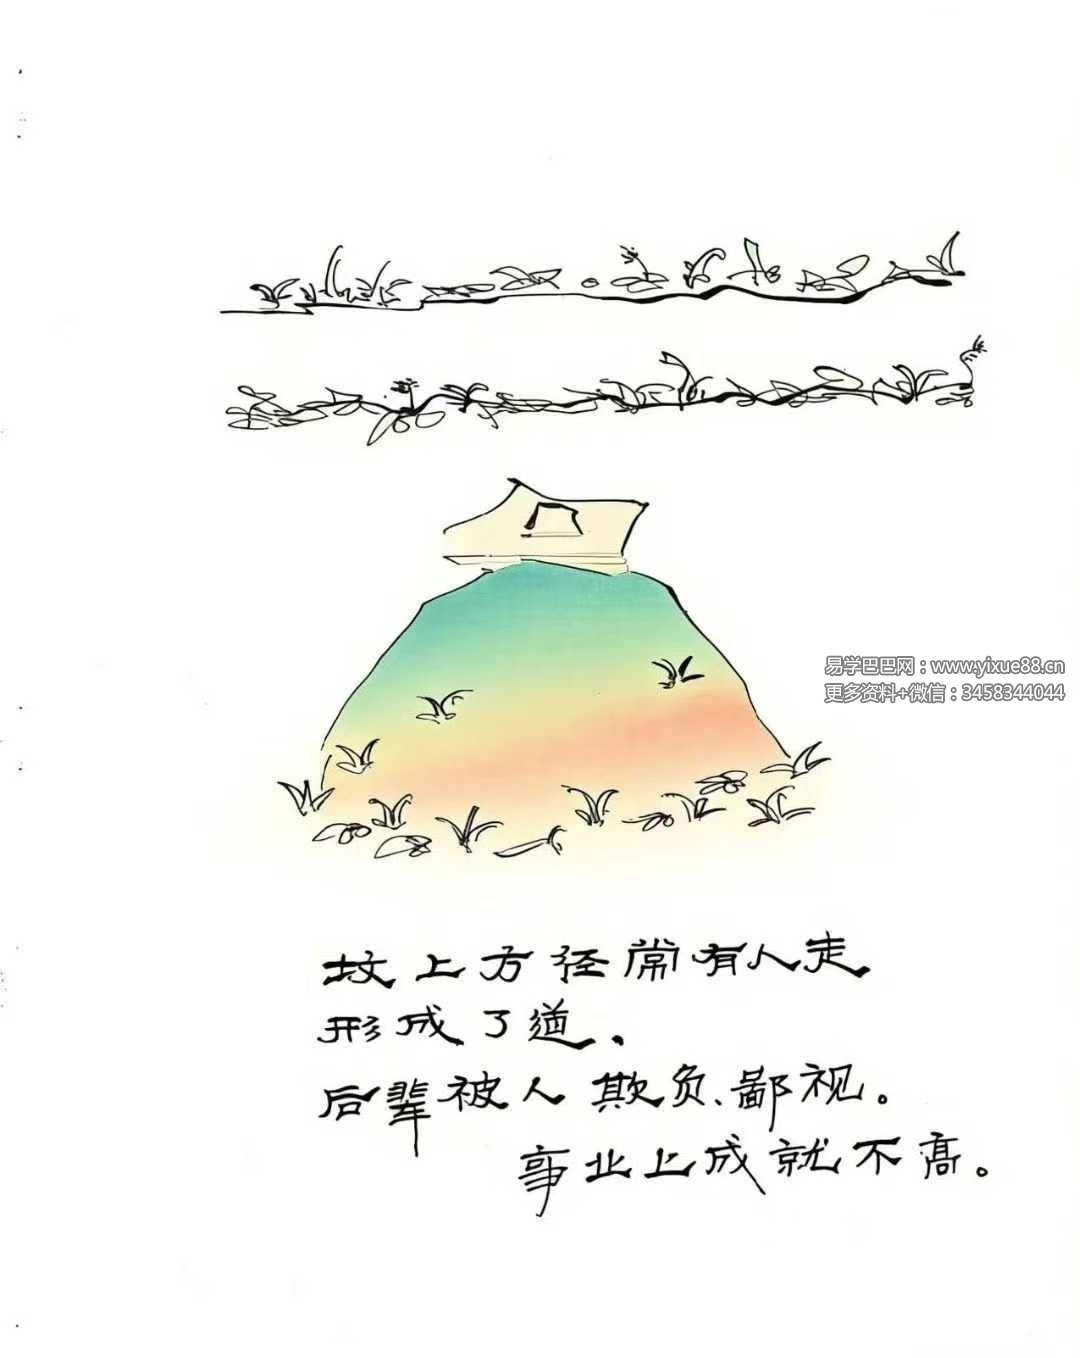 易学巴巴网：www.yixue88.cn
更多资料+微信：3458344044
坟上方径常有人走
形成了道、
后辈被人欺负、鄙视。
事业上成就不高。